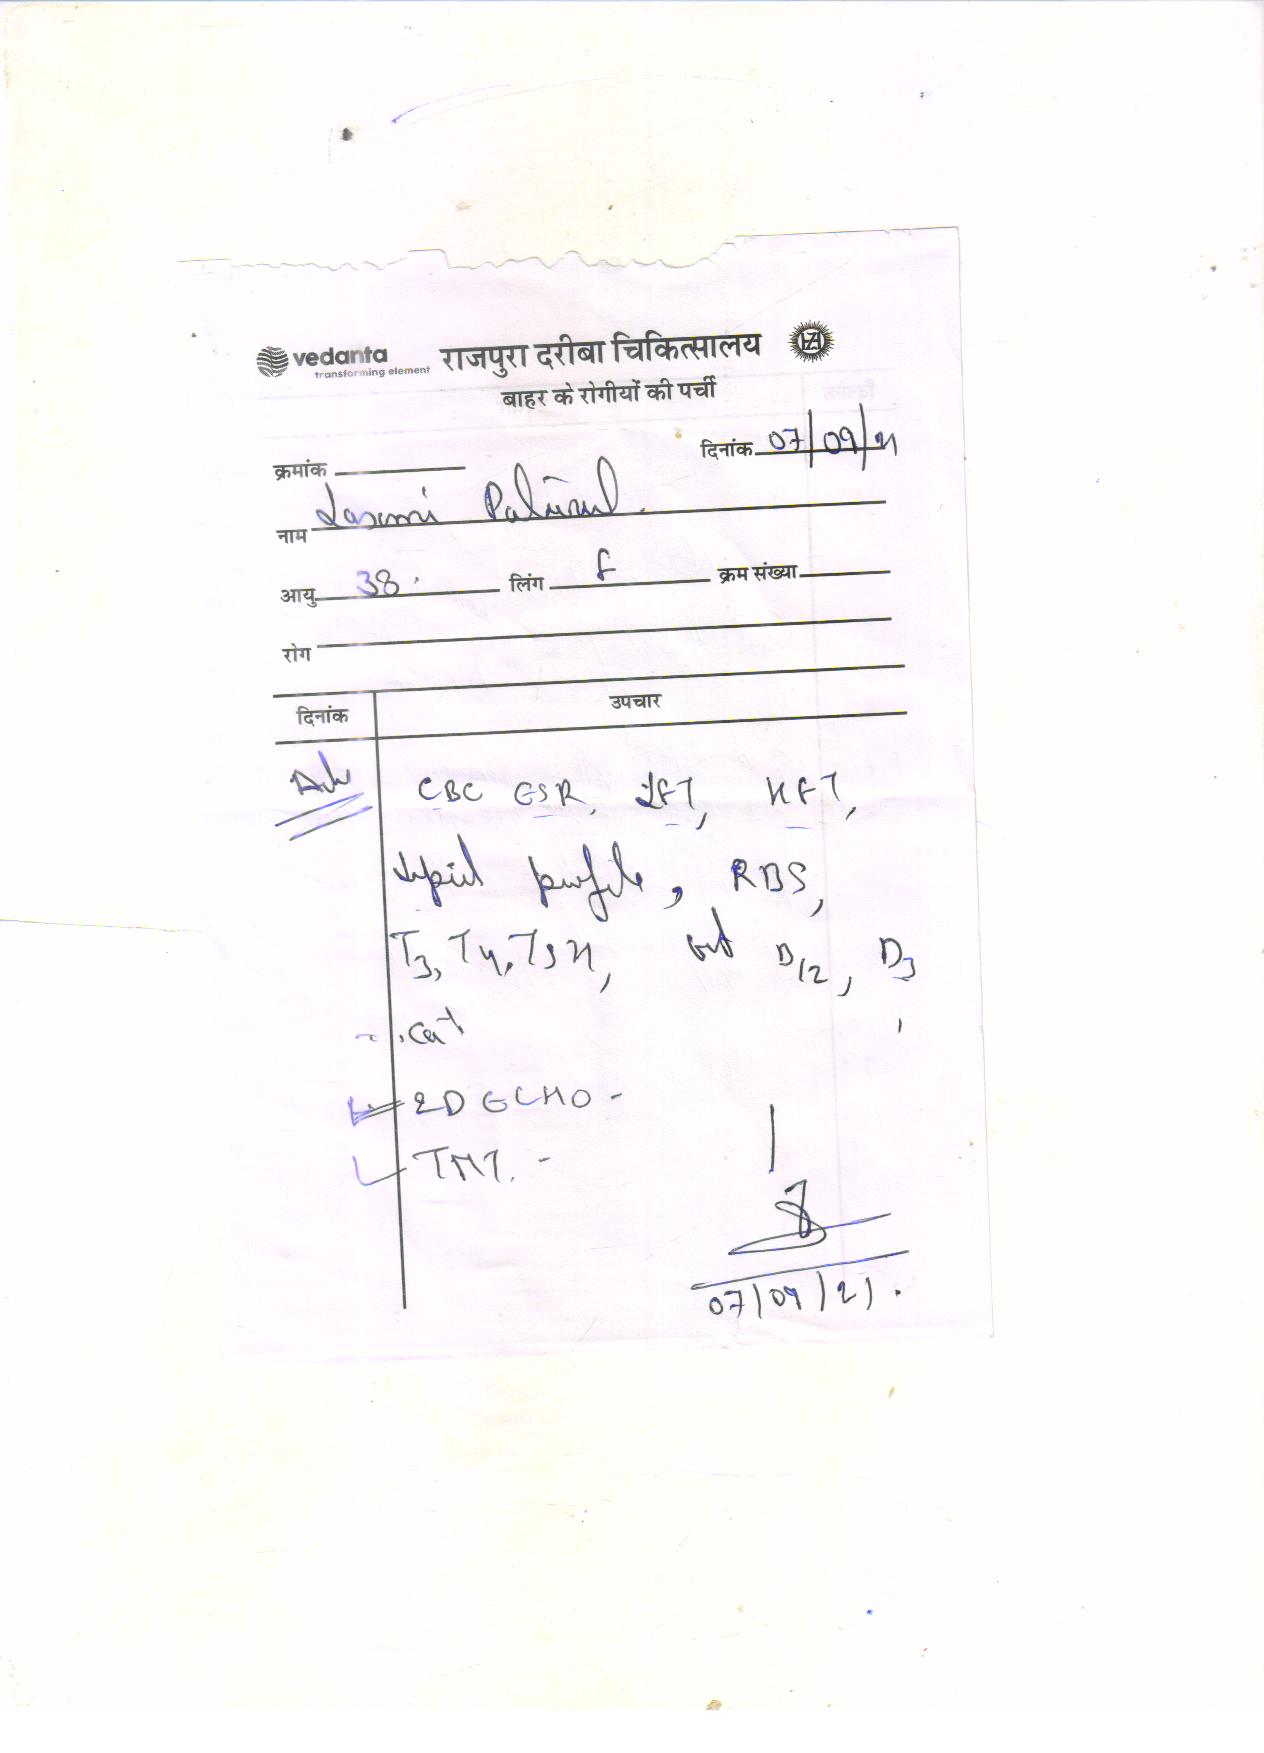 vedanta
transforming element
राजपुरा दरीबा चिकित्सालय
बाहर के रोगीयों की पर्ची
दिनांक 07/09/21
क्रमांक
नाम Laxmi Paliwal
आयु 38. लिंग F क्रम संख्या
रोग
दिनांक उपचार
Adv CBC ESR, LFT, KFT,
Lipid profile, RBS,
T3, T4, TSH, vit B12, D3
2D ECHO -
TMT. -
07/09/21.